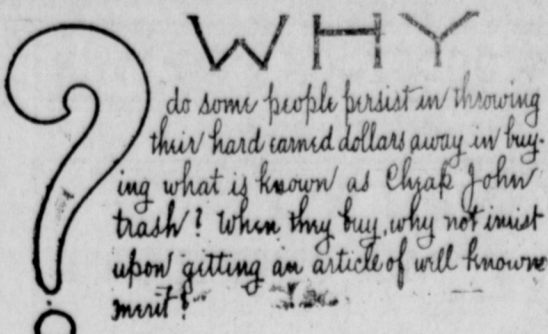 WHY
do some people persist in throwing
their hard earned dollars away in buy-
ing what is known as Cheap John
trash? When they buy, why not insist
upon getting an article of well known
merit?